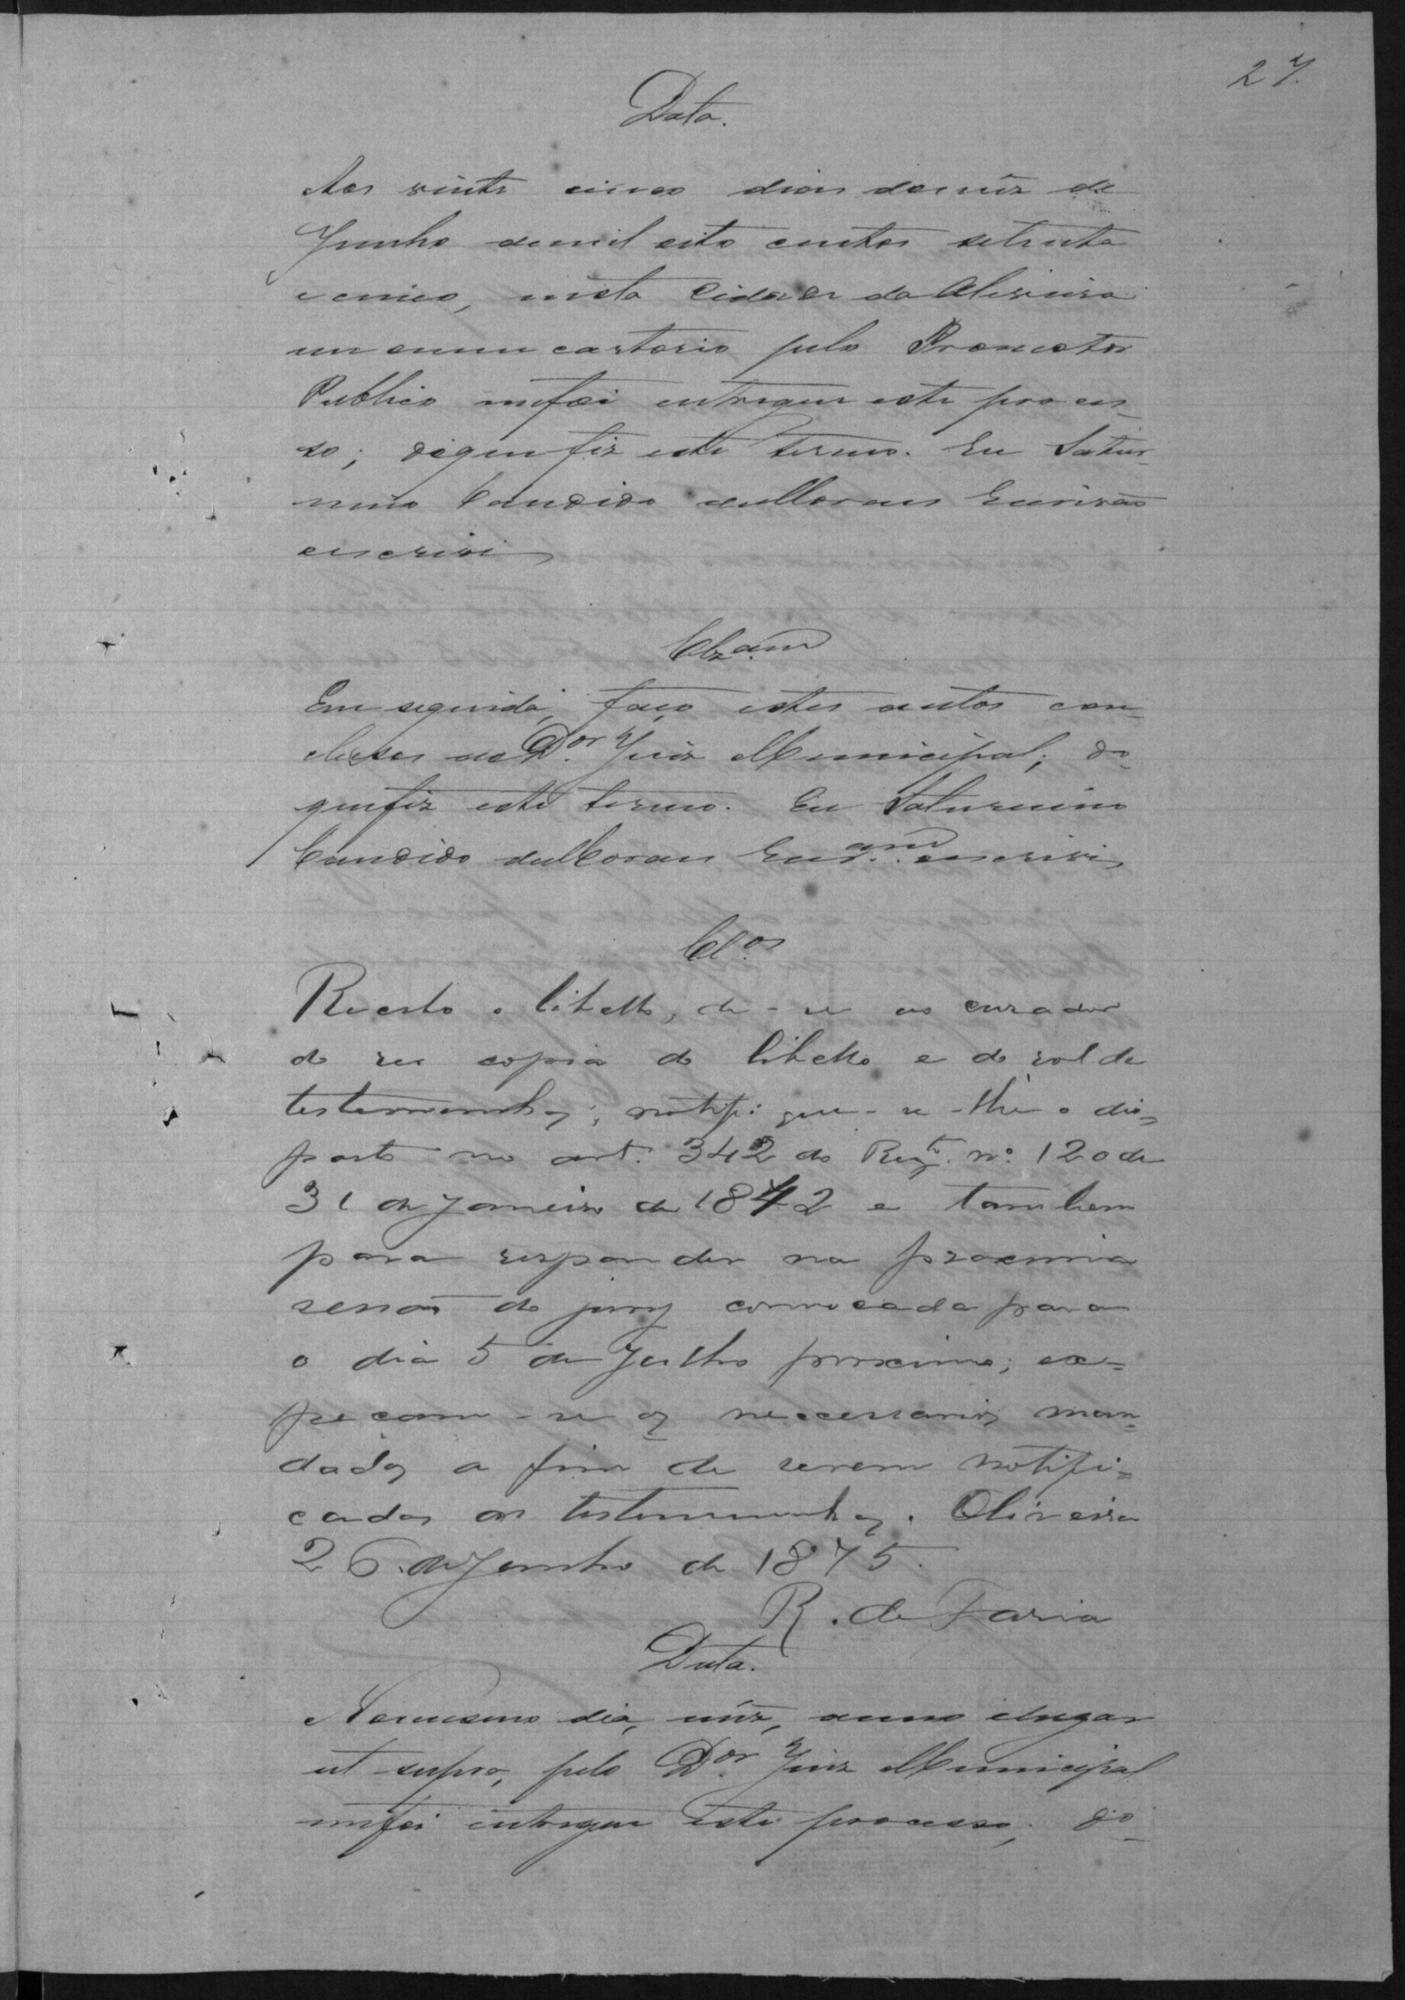 27.
Data.
Aos vinte cinco dias do mez de
Junho de mil oito centos setenta
e cinco, nesta Cidade da Oliveira
em meu cartorio pelo Promotor
Publico me foi entregue este proces-
so; do que fiz este termo. Eu Satur-
nino Candido de Moraes Escrivão
escrivi
Clzam
Em seguida, faço estes autos con-
clusos ao Dor Juiz Municipal; do
que fiz este termo. Eu Saturnino
Candido de Moraes Escram escrivi
Clos
Recebo o libello, de-se ao curador
do reu copia do libello e do rol de
testemunhas; notifique-se-lhe o dis-
posto no art. 342 do Regt. nº 120 de
31 de Janeiro de 1842 e tambem
para responder na proxima
sessão do jury convocada para
o dia 5 de Julho proximo; ex-
peçam-se os neccessarios man-
dados a fim de serem notifi-
cadas as testemunhas. Oliveira
26 de Junho de 1875.
R. de Faria
Data.
No mesmo dia, mez, anno e lugar
ut supra, pelo Dor Juiz Municipal
me foi entregue este processo; do